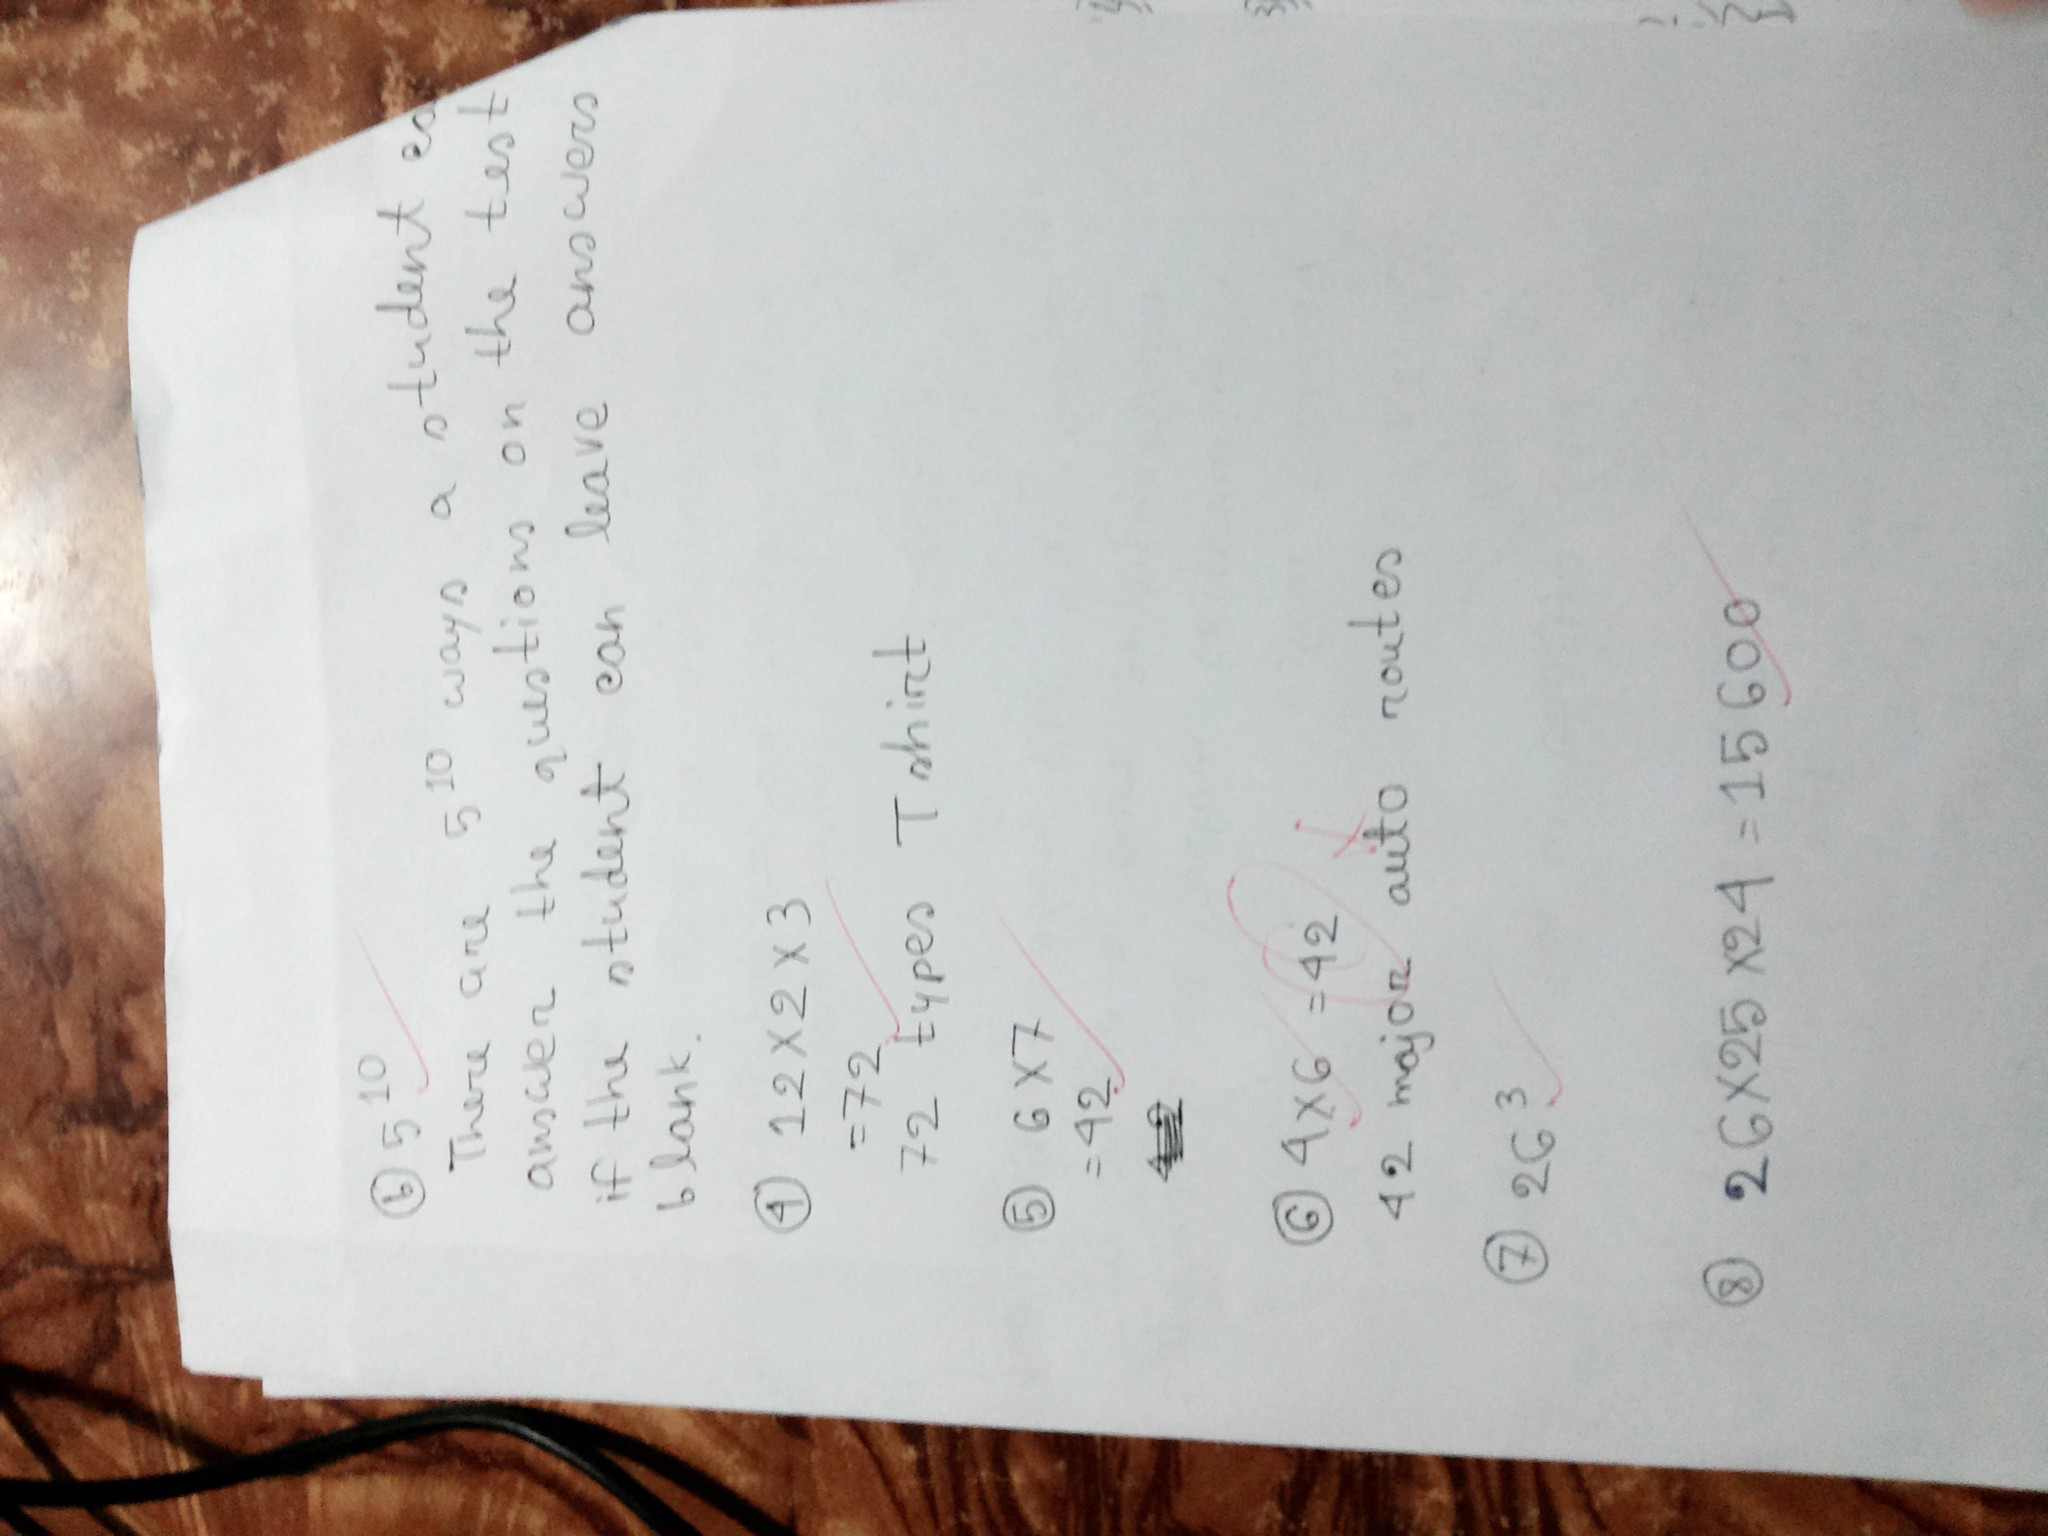 (b) 5^10
There are 5^10 ways a student ca
answer the questions on the test
if the student can leave answers
blank.
(4) 12 X 2 X 3
= 72
72 types T shirt
(5) 6 X 7
= 42
(6) 4 X 6 = 42
42 major auto routes
(7) 26^3
(8) 26 X 25 X 24 = 15 600